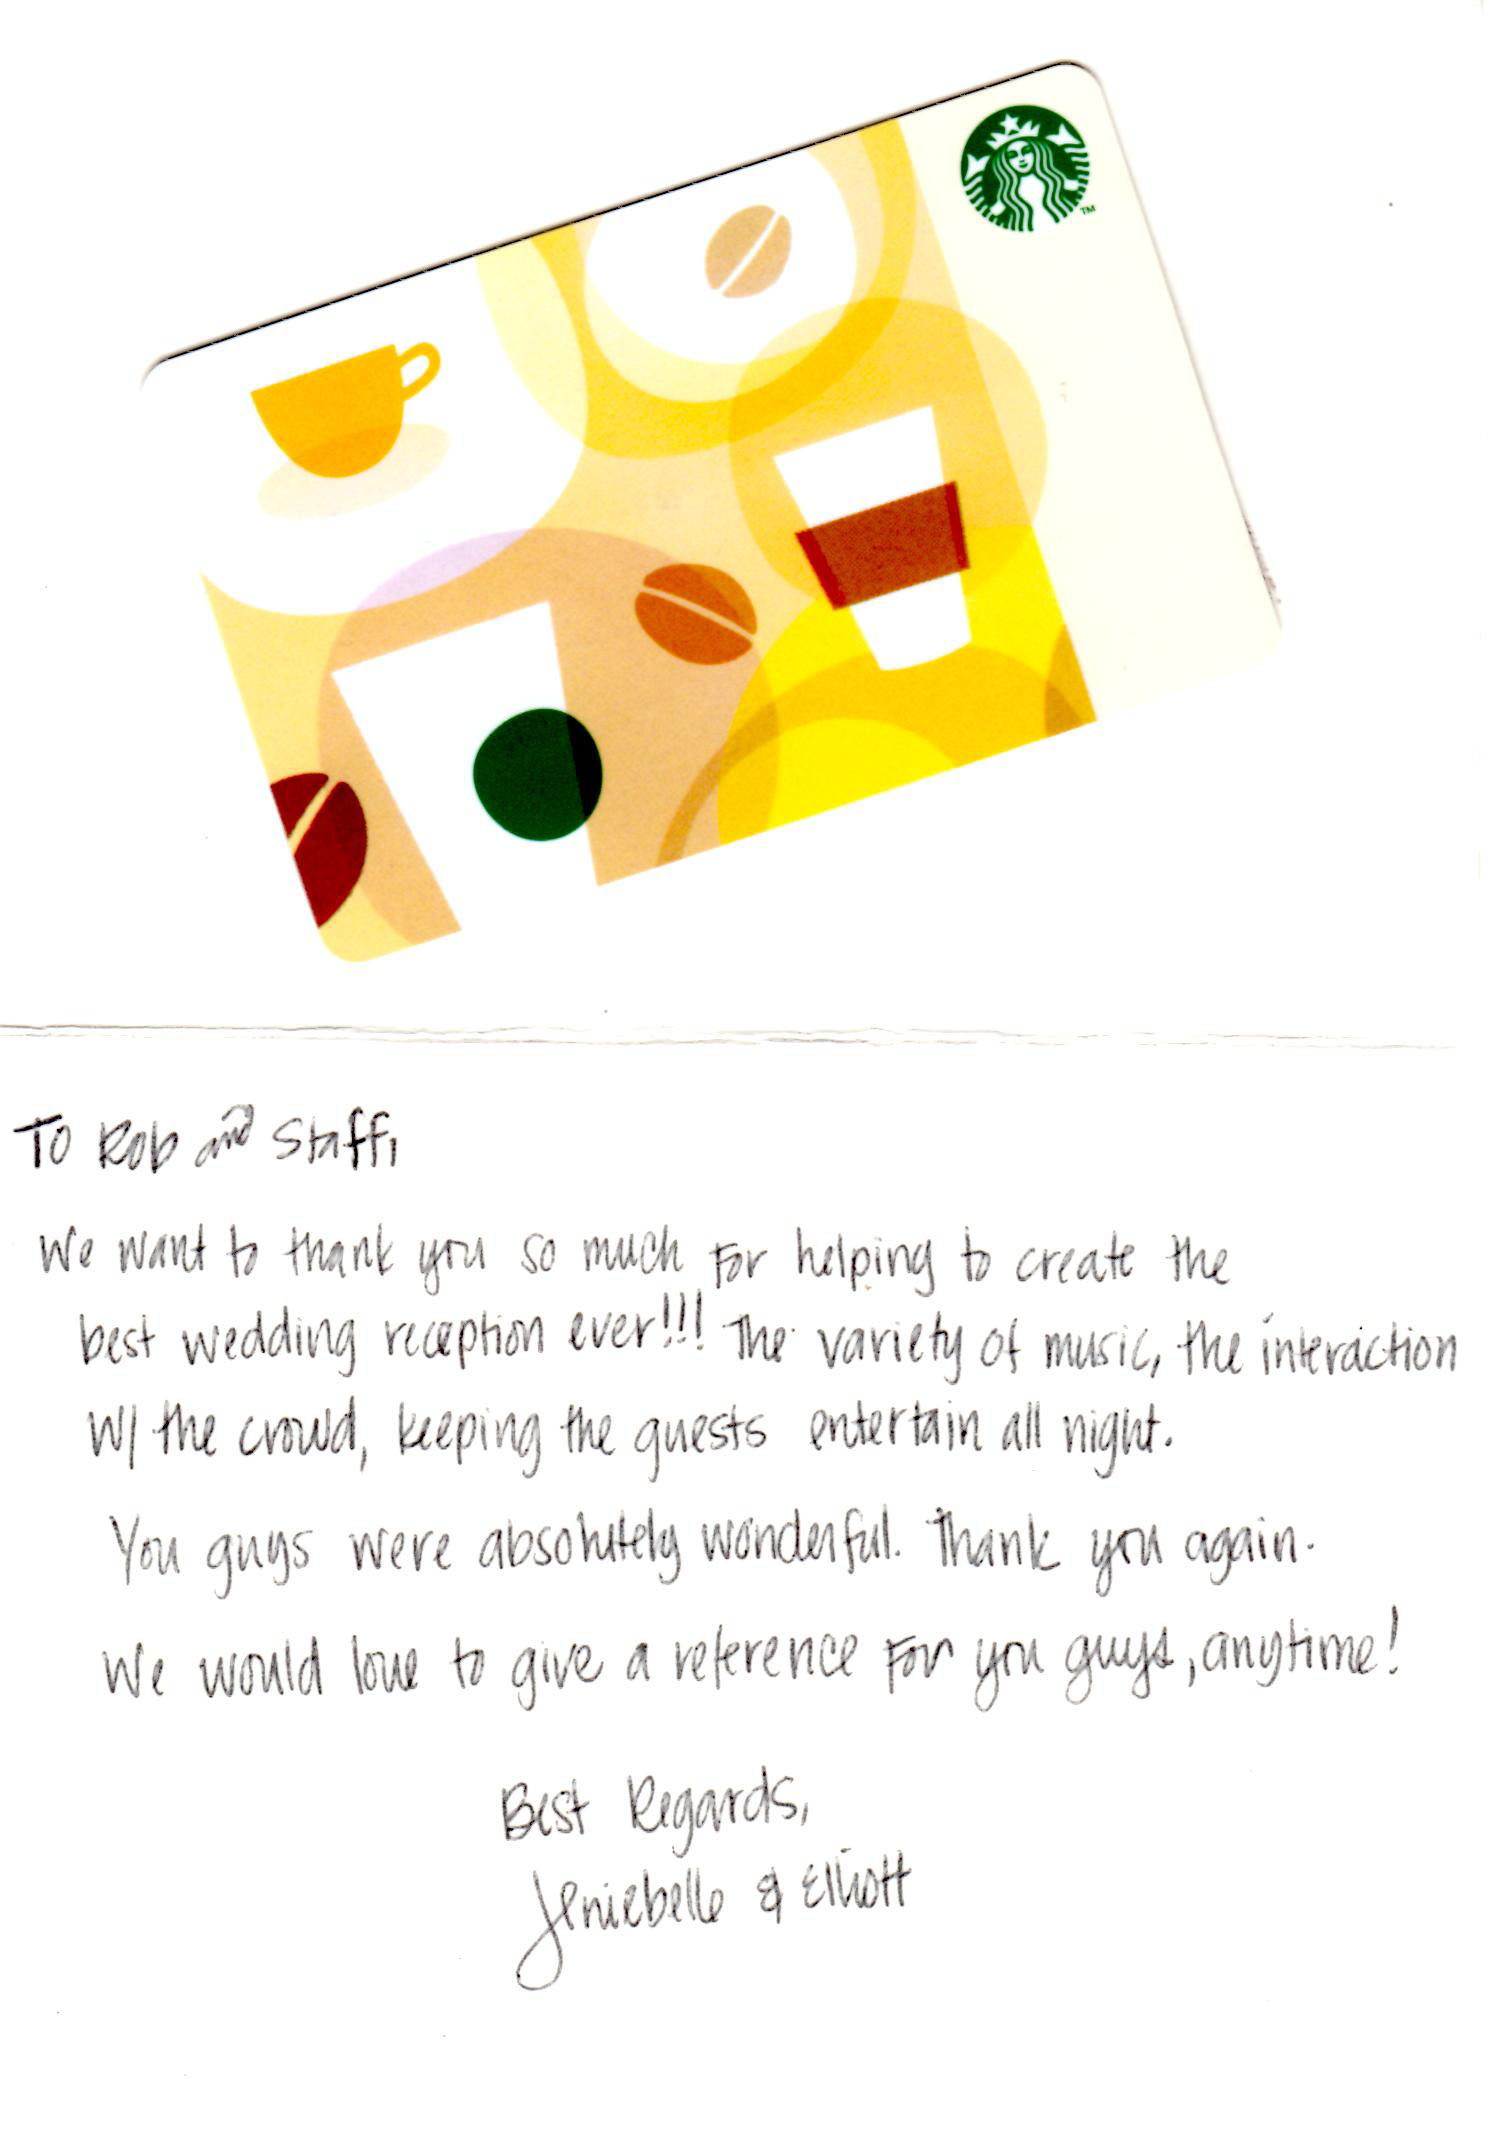 TM
To Rob and Staff,
We want to thank you so much For helping to create the
best wedding reception ever!!! The variety of music, the interaction
w/ the crowd, keeping the guests entertain all night.
You guys were absolutely wonderful. Thank you again.
We would love to give a reference For you guys, anytime!
Best Regards,
Jeniebelle & Elliott